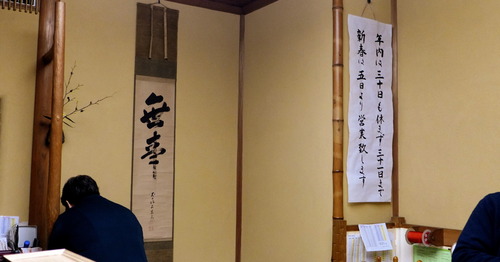 年内は三十日も休まず三十一日まで
新春は五日より営業致します
無事